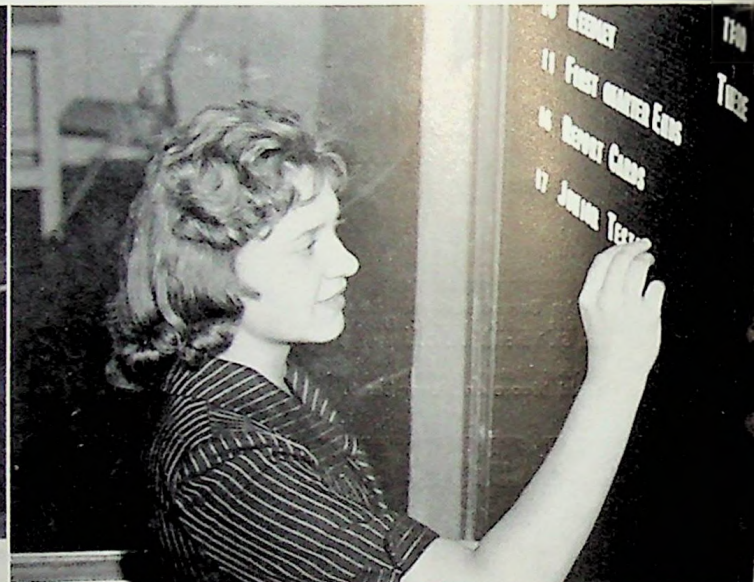 10 REEDLEY
11 FIRST QUARTER ENDS
16 REPORT CARDS
17 JUNIOR TEST
11:00
THERE